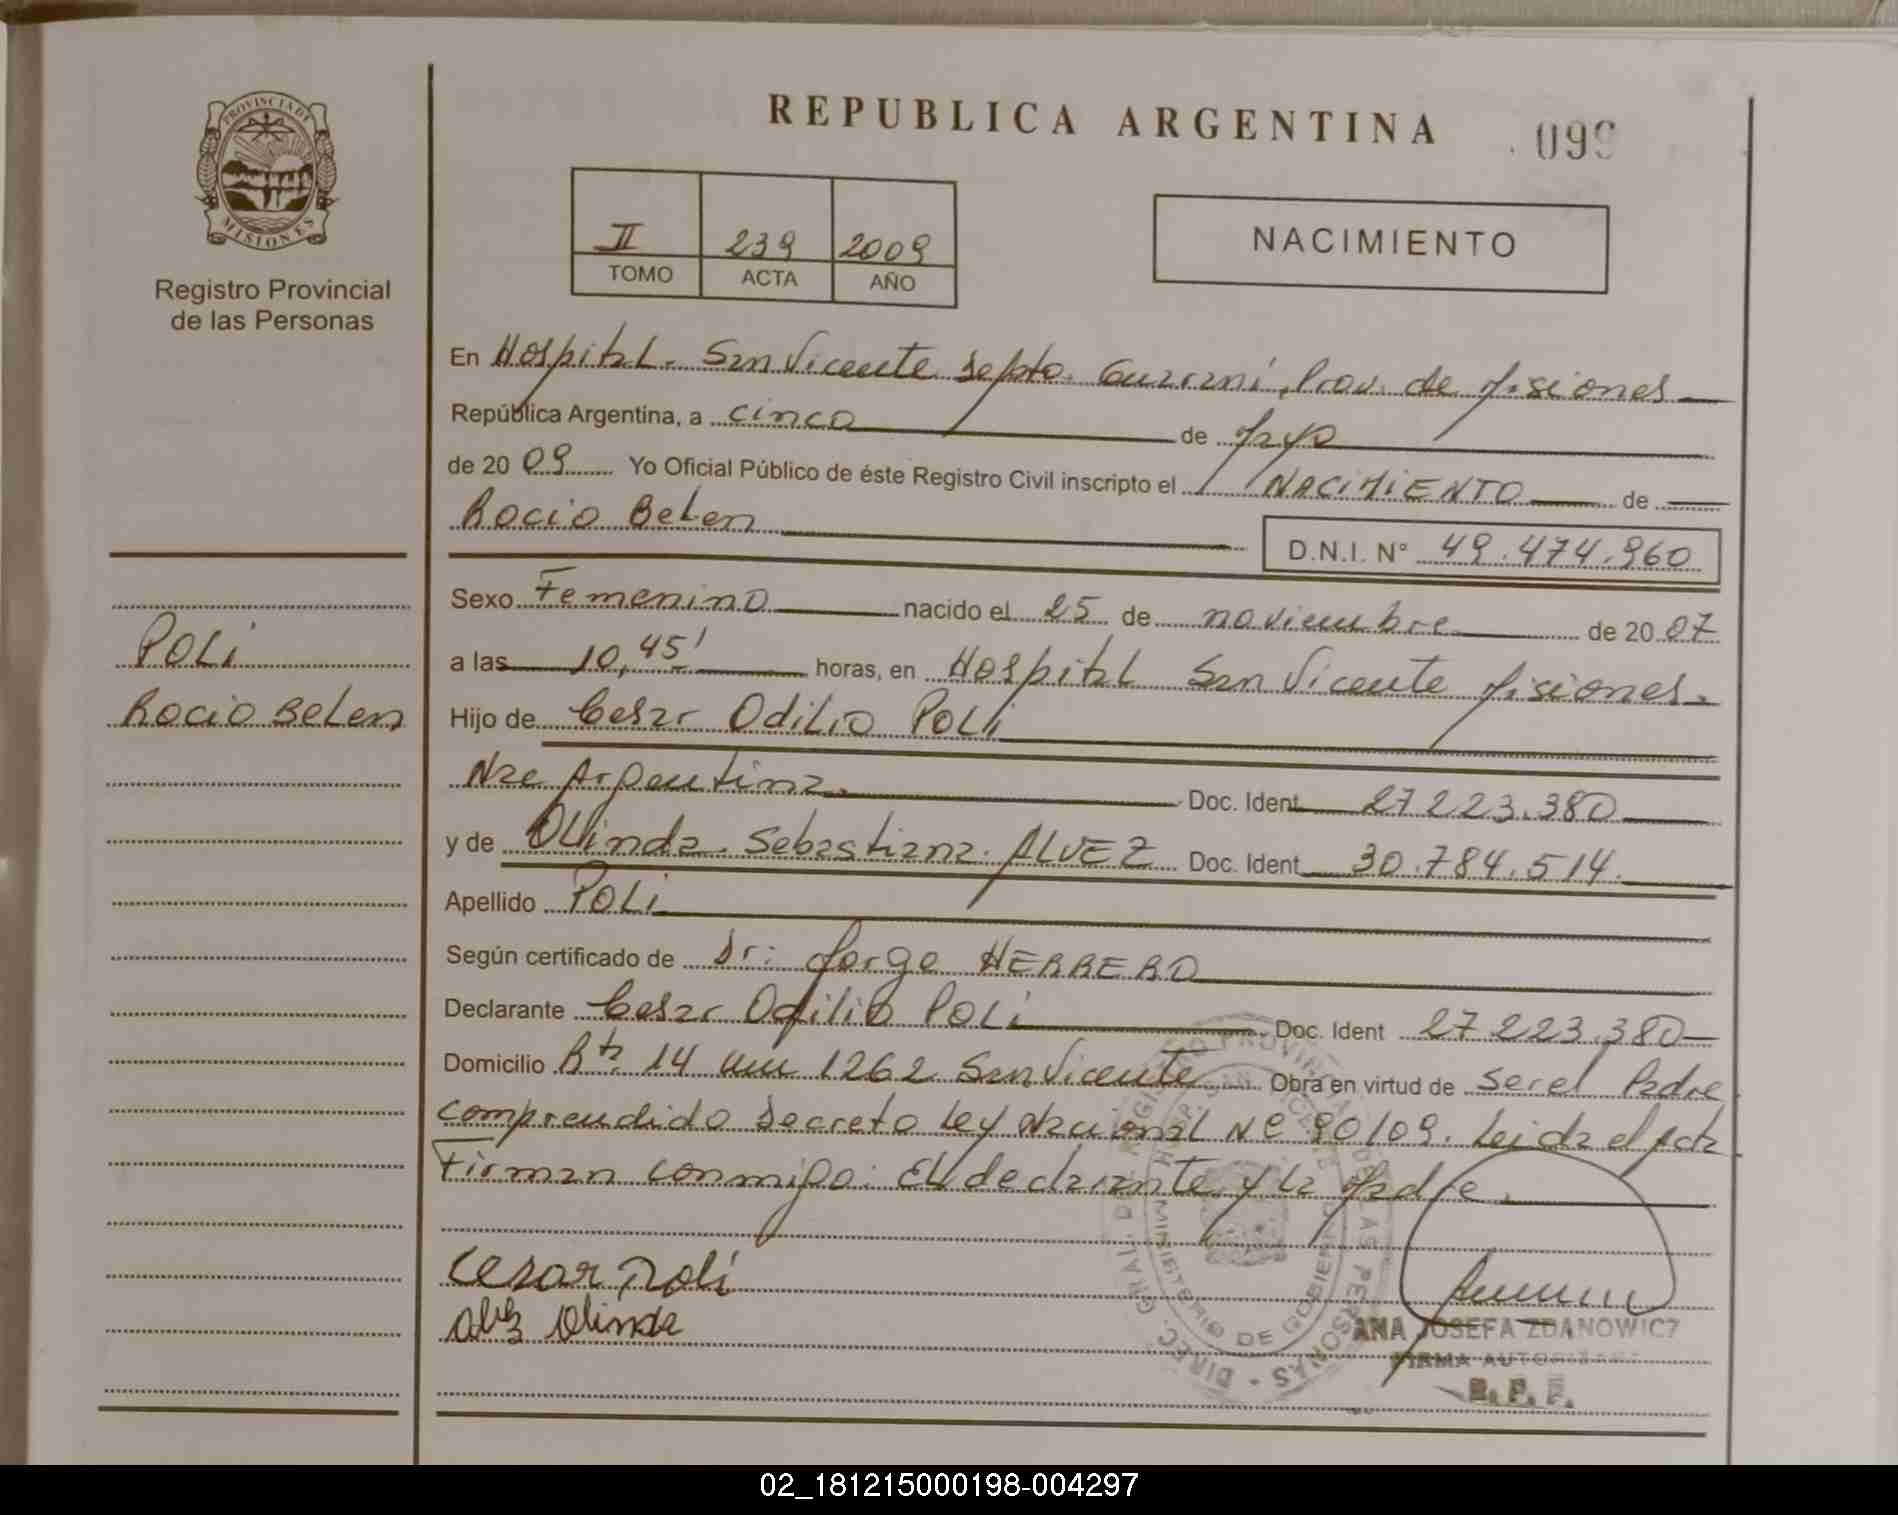 PROVINCIA DE
MISIONES
Registro Provincial
de las Personas
REPUBLICA ARGENTINA
099
II 239 2009
TOMO ACTA AÑO
NACIMIENTO
En Hospital. San Vicente Depto. Guaraní, Prov. de Misiones
República Argentina, a cinco de Mayo
de 20 09 Yo Oficial Público de éste Registro Civil inscripto el NACIMIENTO de
Rocio Belen
D.N.I. N° 49.474.960
Sexo Femenino nacido el 25 de noviembre de 20 07
a las 10,45' horas, en Hospital San Vicente Misiones.
Hijo de Cesar Odilio POLI
Nac Argentina. Doc. Ident 27.223.380
y de OLinda. Sebastiana. ALVEZ Doc. Ident 30.784.514.
Apellido POLI
Según certificado de Dr: Jorge HERRERO
Declarante Cesar Odilio POLI Doc. Ident 27.223.380
Domicilio Rta. 14 km 1262 San Vicente Obra en virtud de ser el Padre
comprendido Decreto Ley Nacional Nº 90/09. Leida el Acta
Firman conmigo: El declarante y la Madre.
POLI
Rocio Belen
Cesar Poli
Alvez Olinda
DIREC. GRAL. DEL REGISTRO PROVINCIAL DE LAS PERSONAS
MINISTERIO DE GOBIERNO
ANA JOSEFA ZDANOWICZ
FIRMA AUTORIZADA
R. P. P.
02_181215000198-004297